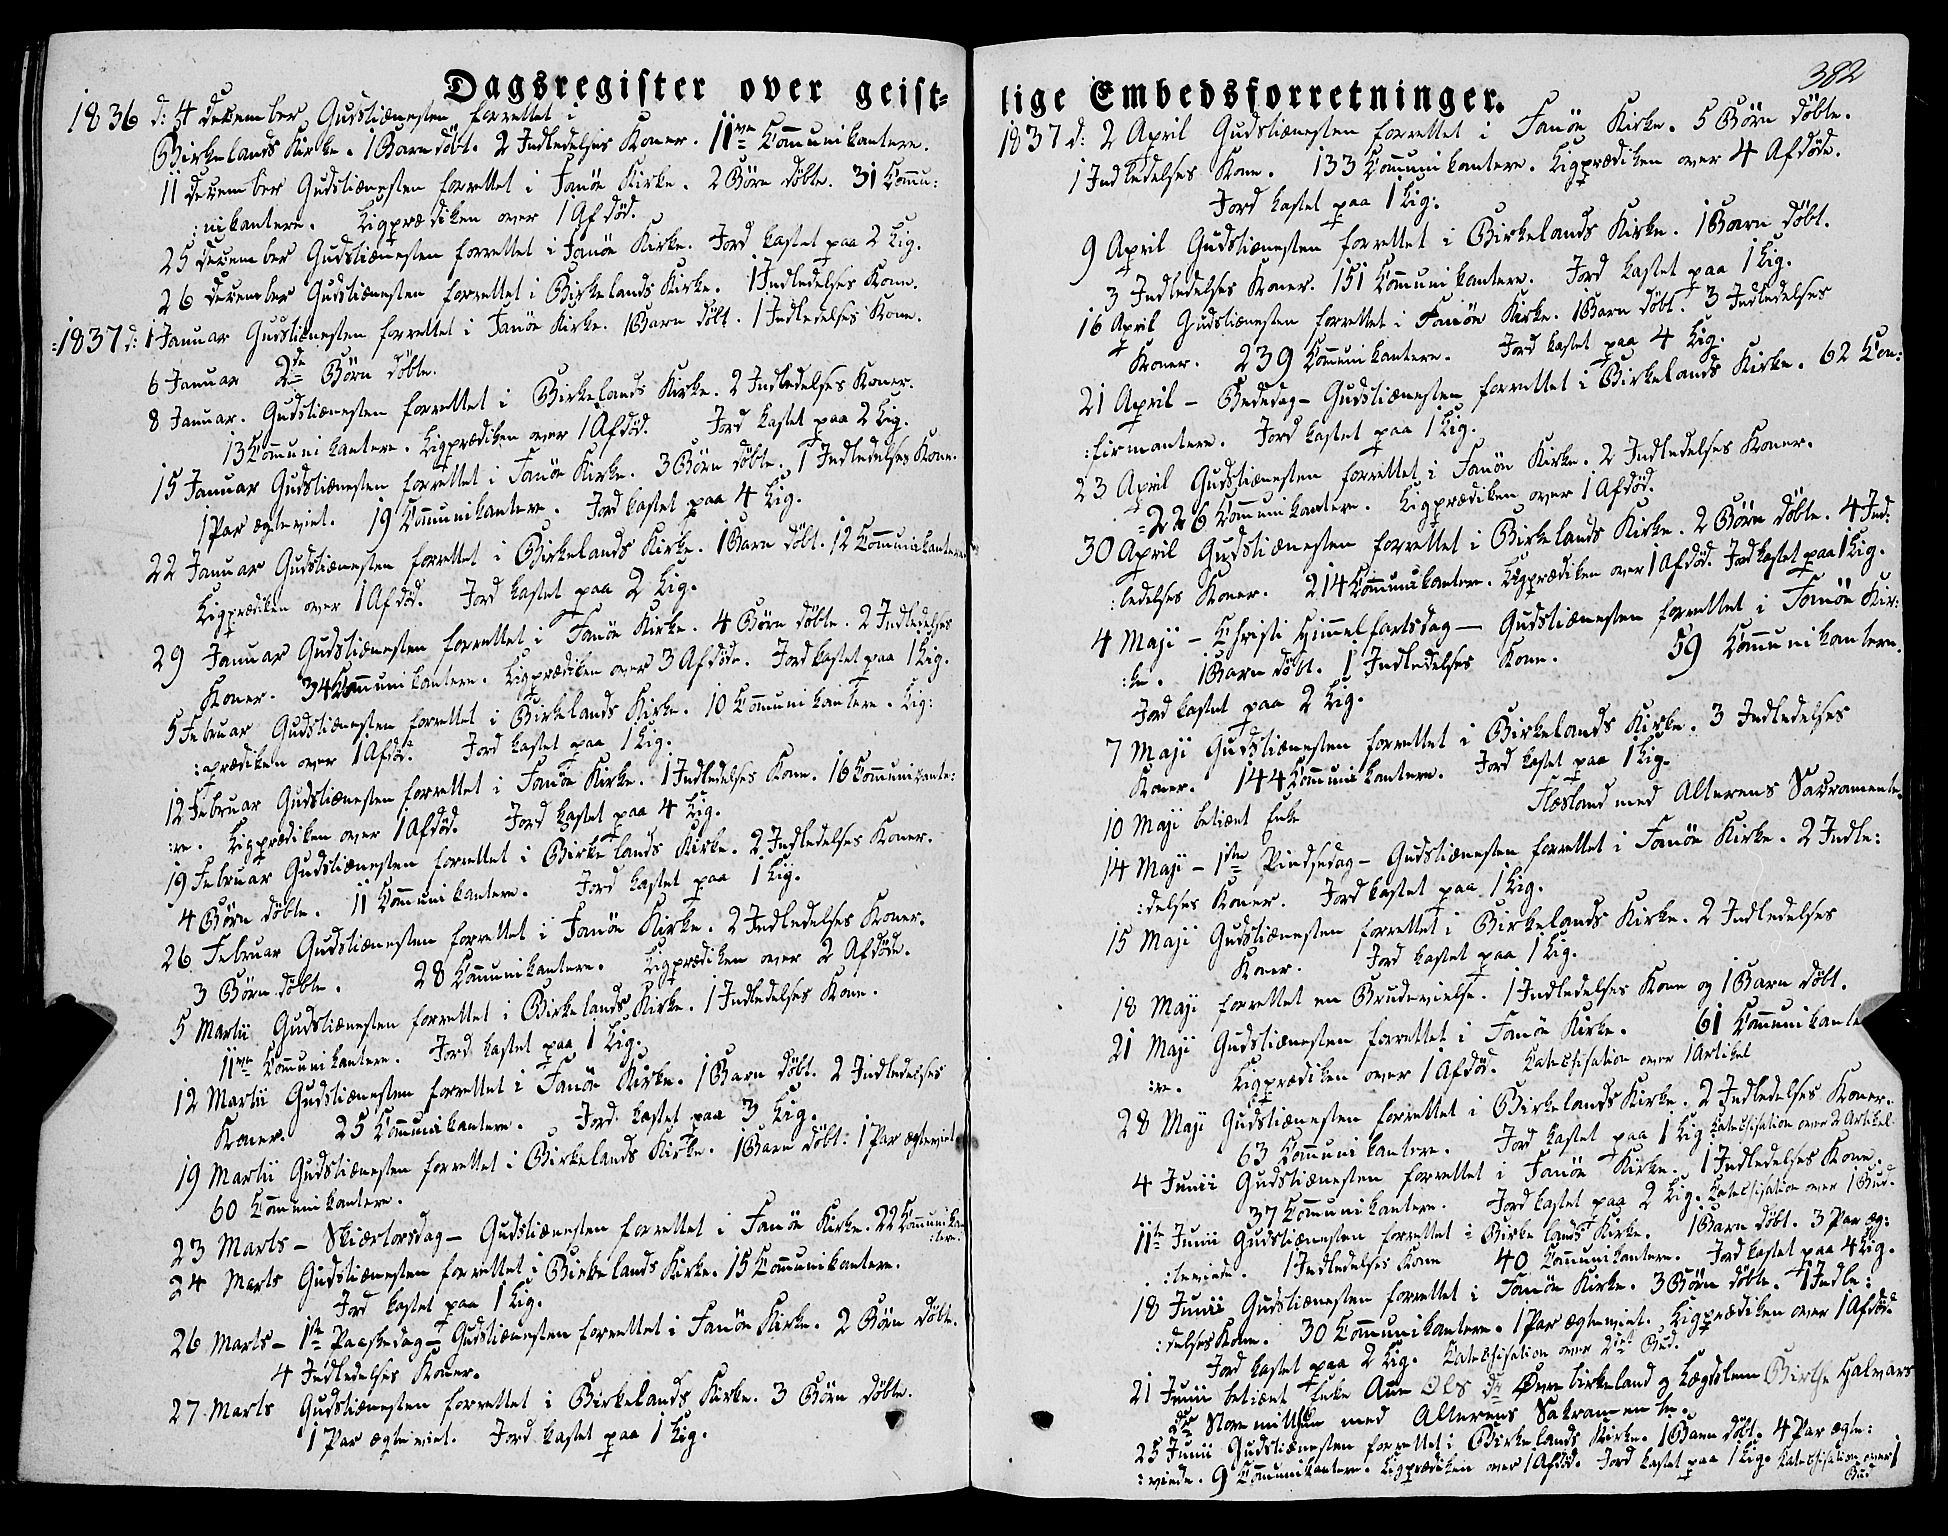 Dagsregister over geist-
1836 d: 4 December Gudstiænesten forrettet i
Birkelands Kirke. 1 Barn døbt. 2 Indledelses Koner. 11ve Communikantere.
11 December Gudstiænesten forrettet i Fanöe Kirke. 2 Börn döbte. 31 Commu:
:nikantere. Ligprædiken over 1 Afdød.
25 December Gudstiænesten forrettet i Fanöe Kirke. Jord kastet paa 2 Lig.
26 December Gudstiænesten forrettet i Birkelands Kirke. 1 Indledelses Kone.
:1837 d: 1 Januar Gudstiænesten forrettet i Fanöe Kirke. 1 Barn döbt. 1 Indledelses Kone.
6 Januar 2de Börn döbte.
8 Januar. Gudstiænesten forrettet i Birkelands Kirke. 2 Indledelses Koner.
13 Communikantere. Ligprædiken over 1 Afdöd. Jord kastet paa 2 Lig.
15 Januar Gudstiænesten forrettet i Fanöe Kirke. 3 Börn döbte. 1 Indledelses Kone.
1 Par ægteviet. 19 Communikantere. Jord kastet paa 4 Lig.
22 Januar Gudstiænesten forrettet i Birkelands Kirke. 1 Barn döbt. 12 Communikantere
Ligprædiken over 1 Afdöd. Jord kastet paa 2 Lig.
29 Januar Gudstiænesten forrettet i Fanöe Kirke. 4 Börn döbte. 2 Indledelses
Koner. 34 Communikantere. Ligprædiken over 3 Afdöde. Jord kastet paa 1 Lig.
5 Februar Gudstiænesten forrettet i Birkelands Kirke. 10 Communikantere. Lig:
:prædiken over 1 Afdöd. Jord kastet paa 1 Lig.
12 Februar Gudstiænesten forrettet i Fanöe Kirke. 1 Indledelses Kone. 16 Communikante:
:re. Ligprædiken over 1 Afdöd. Jord kastet paa 4 Lig.
19 Februar Gudstiænesten forrettet i Birkelands Kirke. 2 Indledelses Koner.
4 Börn döbte. 11 Communikantere. Jord kastet paa 1 Lig.
26 Februar Gudstiænesten forrettet i Fanöe Kirke. 2 Indledelses Koner.
3 Börn döbte. 28 Communikantere. Ligprædiken over 2 Afdöde.
5 Martii Gudstiænesten forrettet i Birkelands Kirke. 1 Indledelses Kone.
11ve Communikantere. Jord kastet paa 1 Lig.
12 Martii Gudstiænesten forrettet i Fanöe Kirke. 1 Barn döbt. 2 Indledelses
Koner. 25 Communikantere. Jord kastet paa 3 Lig.
19 Martii Gudstiænesten forrettet i Birkelands Kirke. 1 Barn döbt: 1 Par ægteviet
60 Communikantere.
23 Marts - Skiærtorsdag - Gudstiænesten forrettet i Fanöe Kirke. 22 Communikan
:tere.
24 Marts Gudstiænesten forrettet i Birkelands Kirke. 15 Communikantere.
Jord kastet paa 1 Lig.
26 Marts - 1ste Paaskedag - Gudstiænesten forrettet i Fanöe Kirke. 2 Börn döbt.
4 Indledelses Koner.
27 Marts Gudstiænesten forrettet i Birkelands Kirke. 3 Börn döbte.
1 Par ægteviet. Jord kastet paa 1 Lig.
382
lige Embedsforretninger.
1837 d: 2 April Gudstiænesten forrettet i Fanöe Kirke. 5 Börn döbte.
1 Indledelses Kone. 133 Communikantere. Ligprædiken over 4 Afdöde.
Jord kastet paa 1 Lig:
9 April Gudstiænesten forrettet i Birkelands Kirke. 1 Barn döbt.
3 Indledelses Koner. 151 Communikantere. Jord kastet paa 1 Lig.
16 April Gudstiænesten forrettet i Fanöe Kirke. 1 Barn döbt. 3 Indledelses
Koner. 239 Communikantere. Jord kastet paa 4 Lig.
21 April - Bededag - Gudstiænesten forrettet i Birkelands Kirke. 62 Con:
:firmantere. Jord kastet paa 1 Lig.
23 April Gudstiænesten forrettet i Fanöe Kirke. 2 Indledelses Koner.
:226 Communikantere. Ligprædiken over 1 Afdöd.
30 April Gudstiænesten forrettet i Birkelands Kirke. 2 Börn döbte. 4 Ind:
:ledelses Koner. 214 Communikantere. Ligprædiken over 1 Afdöd. Jord kastet paa 1 Lig.
4 Maji - Christi Himmelfartsdag - Gudstiænesten forrettet i Fanöe Kir:
:ke. 1 Barn döbt. 1 Indledelses Kone. 59 Communikantere.
Jord kastet paa 2 Lig.
7 Maji Gudstiænesten forrettet i Birkelands Kirke. 3 Indledelses
Koner. 144 Communikantere. Jord kastet paa 1 Lig.
10 Maji betient Enke Flesland med Alterens Sacramente.
14 Maji - 1ste Pindsedag - Gudstiænesten forrettet i Fanöe Kirke. 2 Indle:
:delses Koner. Jord kastet paa 1 Lig.
15 Maji Gudstiænesten forrettet i Birkelands Kirke. 2 Indledelses
Koner. Jord kastet paa 1 Lig.
18 Maji forrettet en Brudevielse. 1 Indledelses Kone og 1 Barn döbt.
21 Maji Gudstiænesten forrettet i Fanöe Kirke. 61 Communikante
:re. Ligprædiken over 1 Afdöd. Catechisation over 1 Artikel
28 Maji Gudstiænesten forrettet i Birkelands Kirke. 2 Indledelses Koner.
63 Communikantere. Jord kastet paa 1 Lig Catechisation over 2 Artikel.
4 Junii Gudstiænesten forrettet i Fanöe Kirke. 1 Indledelses Kone.
37 Communikantere. Jord kastet paa 2 Lig. Catechisation over 1 Bud.
11te Junii Gudstiænesten forrettet i Birkelands Kirke. 1 Barn döbt. 3 Par æg:
:teviede. 1 Indledelses Kone 40 Communikantere. Jord kastet paa 4 Lig.
18 Junii Gudstiænesten forrettet i Fanöe Kirke. 3 Börn döbte. 1 Indle:
:delses Kone. 30 Communikantere. 1 Par ægteviet. Ligprædiken over 1 Afdöd
Jord kastet paa 2 Lig. Catechisation over 2det Bud.
21 Junii betient Enke Ane Ols Dr Övre birkeland og Lægdslem Birthe Halvars
Dr med Alterens Sakramente.
25 Junii Gudstiænesten forrettet i Birkelands Kirke. 1 Barn döbt. 4 Par ægte:
:viede. 9 Communikantere. Ligprædiken over 1 Afdöd. Jord kastet paa 1 Lig. Catechisation over 1
Bud